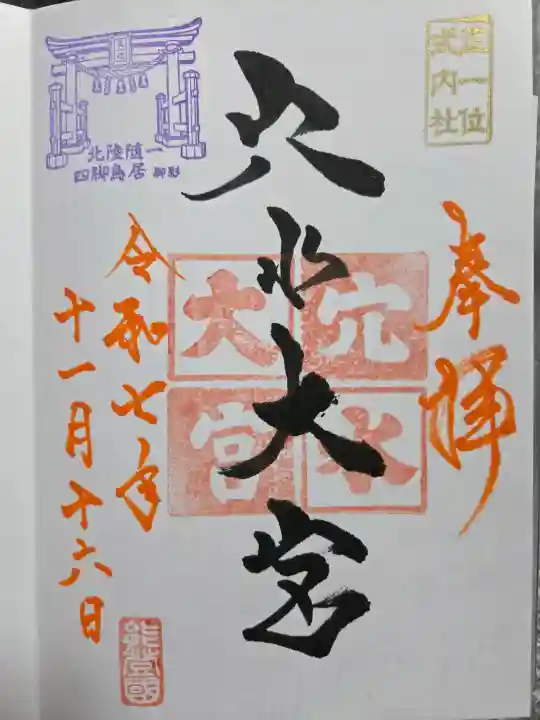 正一位
式内社
奉拝
穴水大宮
穴水
大宮
大宮
北陸随一
四脚鳥居 御影
令和七年
十一月十六日
能登國